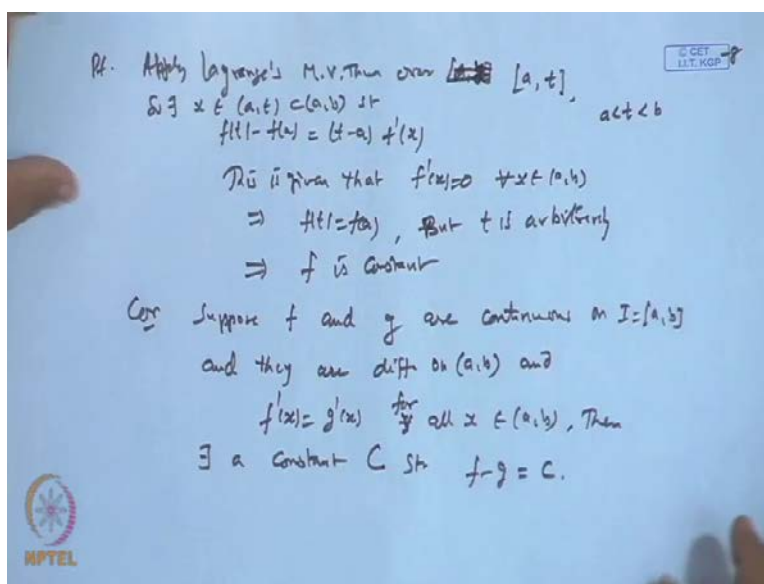 Pf. Apply Lagrange's M.V. Thm over [a, t],
© CET
I.I.T. KGP
-8
So ∃ x ∈ (a,t) ⊂ (a,b) st
a<t<b
f(t) - f(a) = (t-a) f'(x)
This is given that f'(x)=0 ∀ x ∈ (a,b)
⇒ f(t)=f(a), But t is arbitrary
⇒ f is constant
Cor Suppose f and g are continuous on I=[a,b]
and they are diff. on (a,b) and
f'(x)= g'(x) for all x ∈ (a,b), Then
∃ a constant C st. f-g = C.
NPTEL